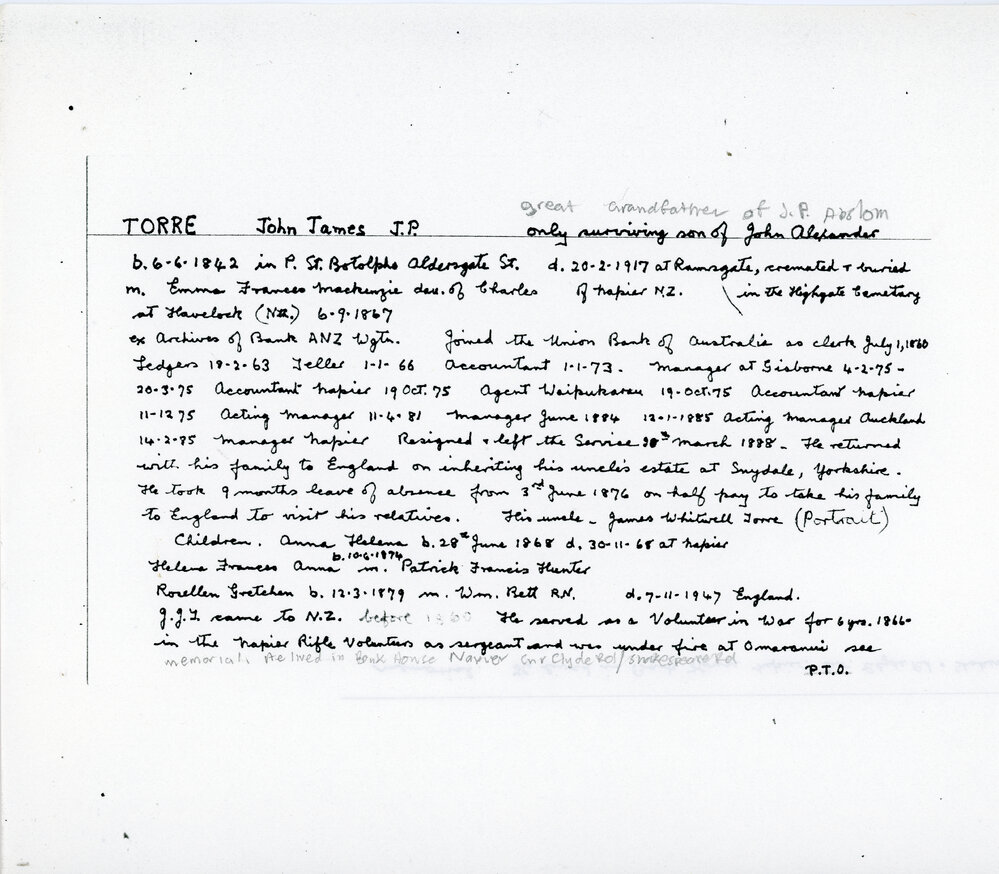 great Grandfather of J.P. Absolom
TORRE John James J.P. only surviving son of John Alexander
b. 6-6-1842 in P. St. Botolphs Aldersgate St. d. 20-2-1917 at Ramsgate, cremated + buried
m. Emma Frances Mackenzie dau. of Charles of Napier N.Z. \ in the Highgate Cemetary
at Havelock (Nth.) 6-9-1867
ex Archives of Bank ANZ Wgtn. Joined the Union Bank of Australia as clerk July 1, 1860
Ledgers 18-2-63 Teller 1-1-66 Accountant 1-1-73. Manager at Gisborne 4-2-75 -
20-3-75 Accountant Napier 19 Oct. 75 Agent Waipukurau 19-Oct. 75 Accountant Napier
11-12 75 Acting Manager 11-4-81 Manager June 1884 12-1-1885 Acting Manager Auckland
14-2-85 Manager Napier Resigned + left the Service March 1888 - He returned
with his family to England on inheriting his uncle's estate at Snydale, Yorkshire.
He took 9 months leave of absence from 3rd June 1876 on half pay to take his family
to England to visit his relatives. His uncle - James Whitwell Torre (Portrait)
Children. Anna Helena b. 28th June 1868 d. 30-11-68 at Napier
b. 10-6-1874
Helena Frances Anna m. Patrick Francis Hunter
Rosellen Gretchen b. 12-3-1879 m. Wm. Bett R.N. d. 7-11-1947 England.
J.J.T. came to N.Z. before 1860 He served as a Volunteer in War for 6 yrs. 1866-
in the Napier Rifle Volunteers as sergeant and was under fire at Omaranui see
memorial. He lived in Bank House Napier Cnr Clyde Rd / Shakespeare Rd
P.T.O.